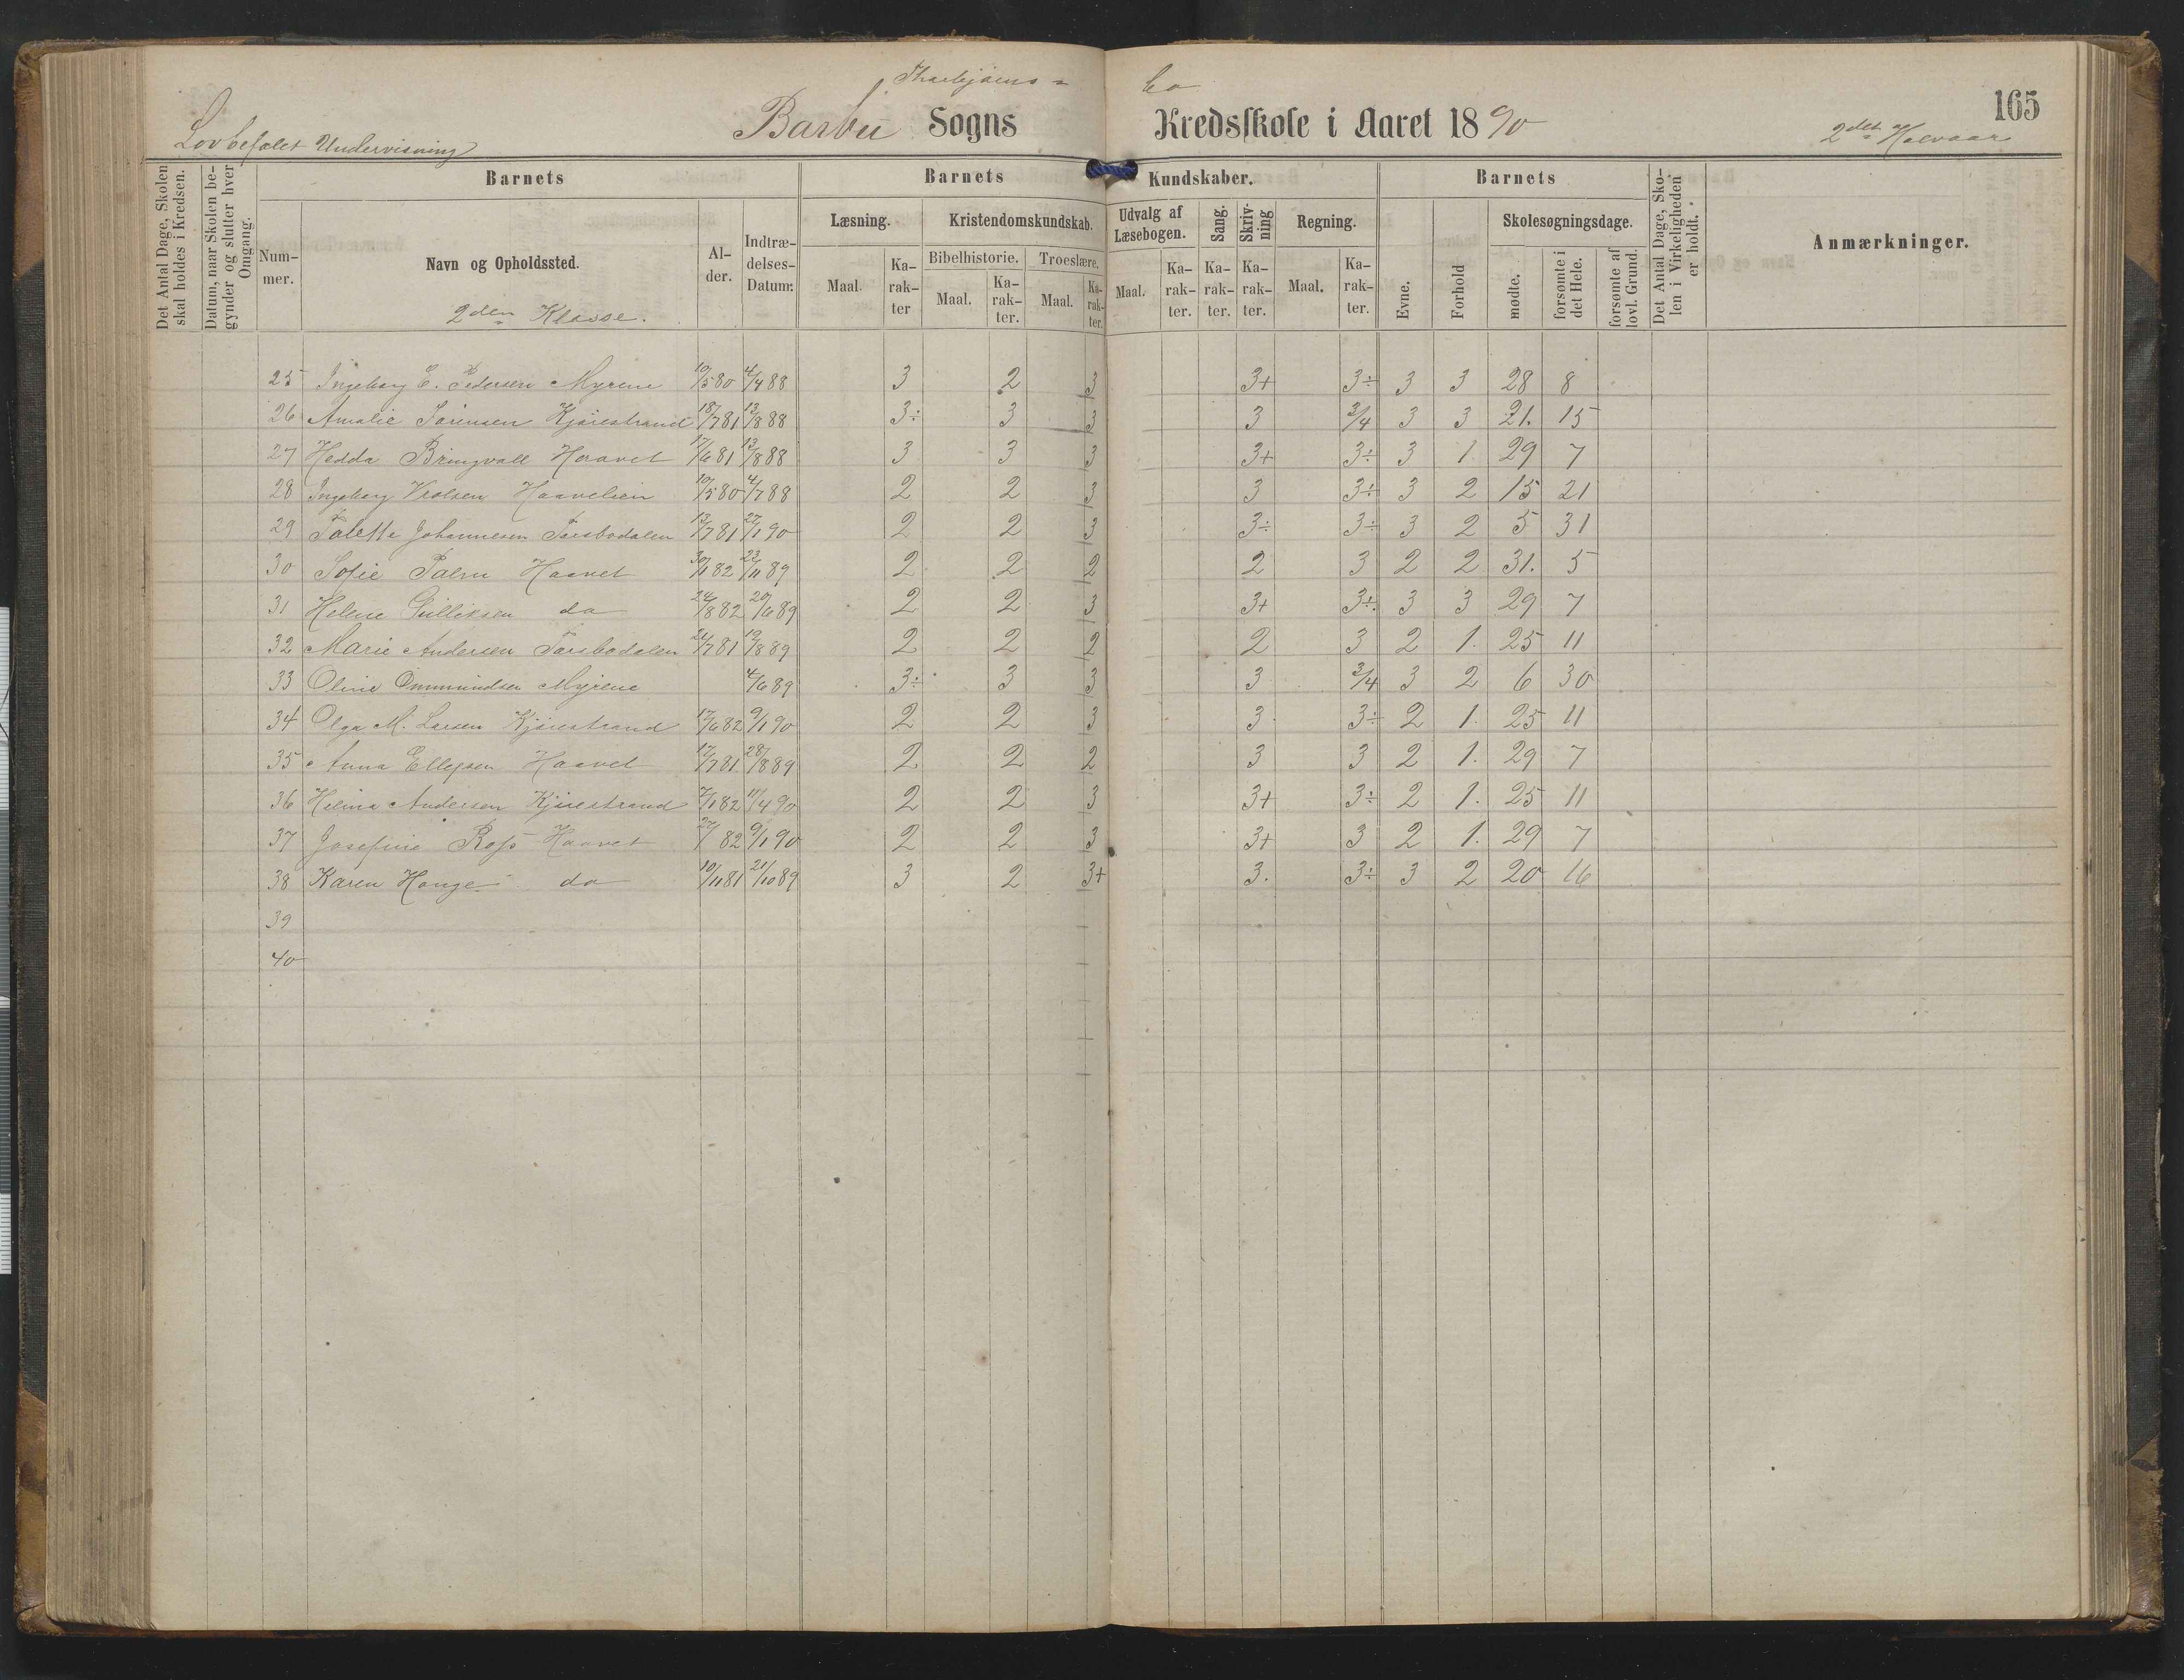 Thorbjörns = bo
Lovbefalet Undervisning Barbu Sogns Kredsskole i Aaret 1890 2det Halvaar 165
Det Antal Dage, Skolen skal holdes i Kredsen.
Datum, naar Skolen begynder og slutter hver Omgang.
Barnets
Barnets Kundskaber.
Barnets
Det Antal Dage, Skolen i Virkeligheden er holdt.
Anmærkninger.
Nummer.
Navn og Opholdssted.
Alder.
Indtrædelses-Datum:
Læsning.
Kristendomskundskab.
Udvalg af Læsebogen.
Sang.
Skrivning
Regning.
Evne.
Forhold
Skolesøgningsdage.
Bibelhistorie. Troeslære.
Maal. Karakter Maal. Karakter. Maal. Karakter. Maal. Karakter. Karakter. Karakter. Maal. Karakter.
mødte. forsømte i det Hele. forsømte af lovl. Grund.
2den Klasse.
25 Ingeborg E. Pedersen Myrene 10/5 80 4/4 88 3 2 3 3+ 3÷ 3 3 28 8
26 Amalie Sørensen Kjøiestrand 18/7 81 13/8 88 3÷ 3 3 3 3/4 3 3 21. 15
27 Hedda Bringvall Haavet 17/6 81 13/8 88 3 3 3 3+ 3÷ 3 1 29 7
28 Ingeborg Vrolsen Haavelien 10/5 80 4/7 88 2 2 3 3 3÷ 3 2 15 21
29 Tolette Johannesen Torsbodalen 13/7 81 27/1 90 2 2 3 3÷ 3÷ 3 2 5 31
30 Sofie Palm Haavet 30/1 82 23/11 89 2 2 2 2 3 2 2 31. 5
31 Helene Gulliksen do 24/8 82 20/6 89 2 2 3 3+ 3÷ 3 3 29 7
32 Marie Andersen Torsbodalen 24/7 81 19/8 89 2 2 2 2 3 2 1. 25 11
33 Oline Ommundsen Myrene 4/6 89 3÷ 3 3 3 3/4 3 2 6 30
34 Olga M. Larsen Kjøiestrand 17/6 82 9/1 90 2 2 3 3 3÷ 2 1. 25 11
35 Anna Ellefsen Haavet 17/7 81 28/8 89 2 2 2 3 3 2 1. 29 7
36 Helina Andersen Kjøiestrand 7/1 82 11/4 90 2 2 3 3+ 3÷ 2 1. 25 11
37 Josefine Ross Haavet 27/ 82 9/1 90 2 2 3 3+ 3 2 1. 29 7
38 Karen Hauge do 10/11 81 21/10 89 3 2 3+ 3. 3÷ 3 2 20 16
39
40